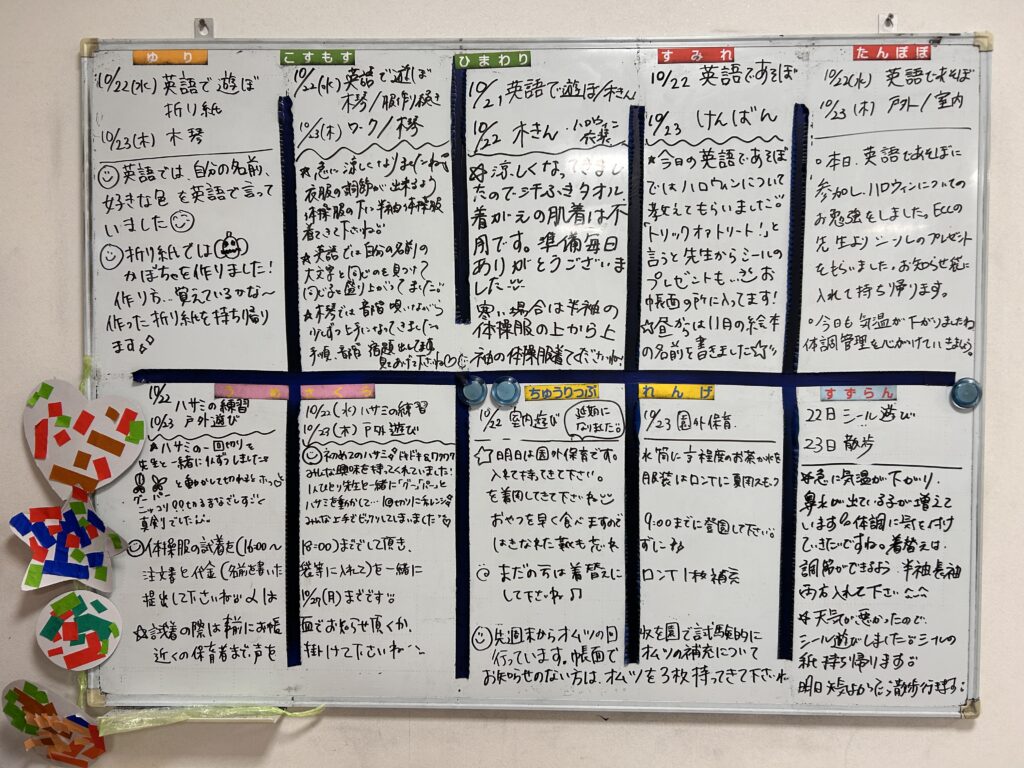 ゆり
10/22(水) 英語で遊ぼ
折り紙
10/23(木) 木琴
英語では、自分の名前、
好きな色を英語で言って
いました
折り紙では
かぼちゃを作りました!
作り方…覚えているかな〜
作った折り紙を持ち帰り
ます♪
こすもす
10/22(水) 英語で遊ぼ
木琴/服作り続き
10/23(木) ワーク/木琴
★急に涼しくなりましたね
衣服の調節が出来るよう
体操服の下に半袖体操服
着てきて下さいね
★英語では自分の名前の
大文字と同じのを見つけて
同じ子と盛り上がってました
★木琴では音階唄いながら
少しずつ上手になってきました
手順、音階 宿題出してます
見てあげて下さいね♡
ひまわり
10/21 英語で遊ぼ/木きん
10/22 木きん ハロウィン
衣装
☆涼しくなってきまし
たので汗ふきタオル
着がえの肌着は不
用です。準備毎日
ありがとうございま
した
寒い場合は半袖の
体操服の上から上
袖の体操服着てくださいね
すみれ
10/22 英語であそぼ
10/23 けんばん
★今日の英語であそぼ
ではハロウィンについて
教えてもらいました。
「トリックオアトリート!」と
言うと先生からシールの
プレゼントも…
帳面の所に入ってます!
☆昼からは11月の絵本
の名前を書きました☆
たんぽぽ
10/22(水) 英語であそぼ
10/23(木) 戸外/室内
○本日、英語であそぼに
参加し、ハロウィンについての
お勉強をしました。ECCの
先生よりシールのプレゼント
をもらいました。お知らせ袋に
入れて持ち帰ります。
○今日も気温が下がりましたね
体調管理を心がけていきましょう。
10/22 ハサミの練習
10/23 戸外遊び
★ハサミの一回切りを
先生と一緒に1人ずつしました
グーパー と動かして切れるとホッ
ニッコリ
真剣でした
体操服の試着を(16:00〜
注文書と代金(名前を書いた
提出して下さいね
☆試着の際は事前にお帳
近くの保育者まで、声を
さくら
10/22(水) ハサミの練習
10/23(木) 戸外遊び
初めてのハサミ!ドキドキ&ワクワク
みんな興味を持ってくれていました!
1人ひとり先生と一緒に「グーパーっ」と
ハサミを動かして… 1回切りにチャレンジ
みんな上手でビックリしてしまいました
18:00)までとして頂き、
袋等に入れて)を一緒に
10/27(月)までです
面でお知らせ頂くか、
掛けて下さいね
ちゅうりっぷ
10/22 室内遊び 延期に
なりました。
☆明日は園外保育です。
入れて持ってきて下さい。
を着用してきて下さいね
おやつを早く食べますので
はきなれた靴も忘れ
まだの方は着替えに
して下さいね♫
先週末からオムツの回
行っています。帳面で
お知らせのない方は、オムツを3枚持ってきて下さいね
れんげ
10/23 園外保育
水筒に 程度のお茶か水を
服装はロンTに夏用スモック
9:00までに登園して下さい。
ずにね
ロンT1枚補充
収を園で試験的に
オムツの補充について
すずらん
22日 シール遊び
23日 散歩
☆急に気温が下がり、
鼻水が出ている子が増えて
います 体調に気を付けて
いきたいですね。着替えは
調節ができるよう 半袖長袖
両方入れて下さい
★天気が悪かったので
シール遊びしました シールの
紙 持ち帰ります
明日天気よかったら散歩行きます